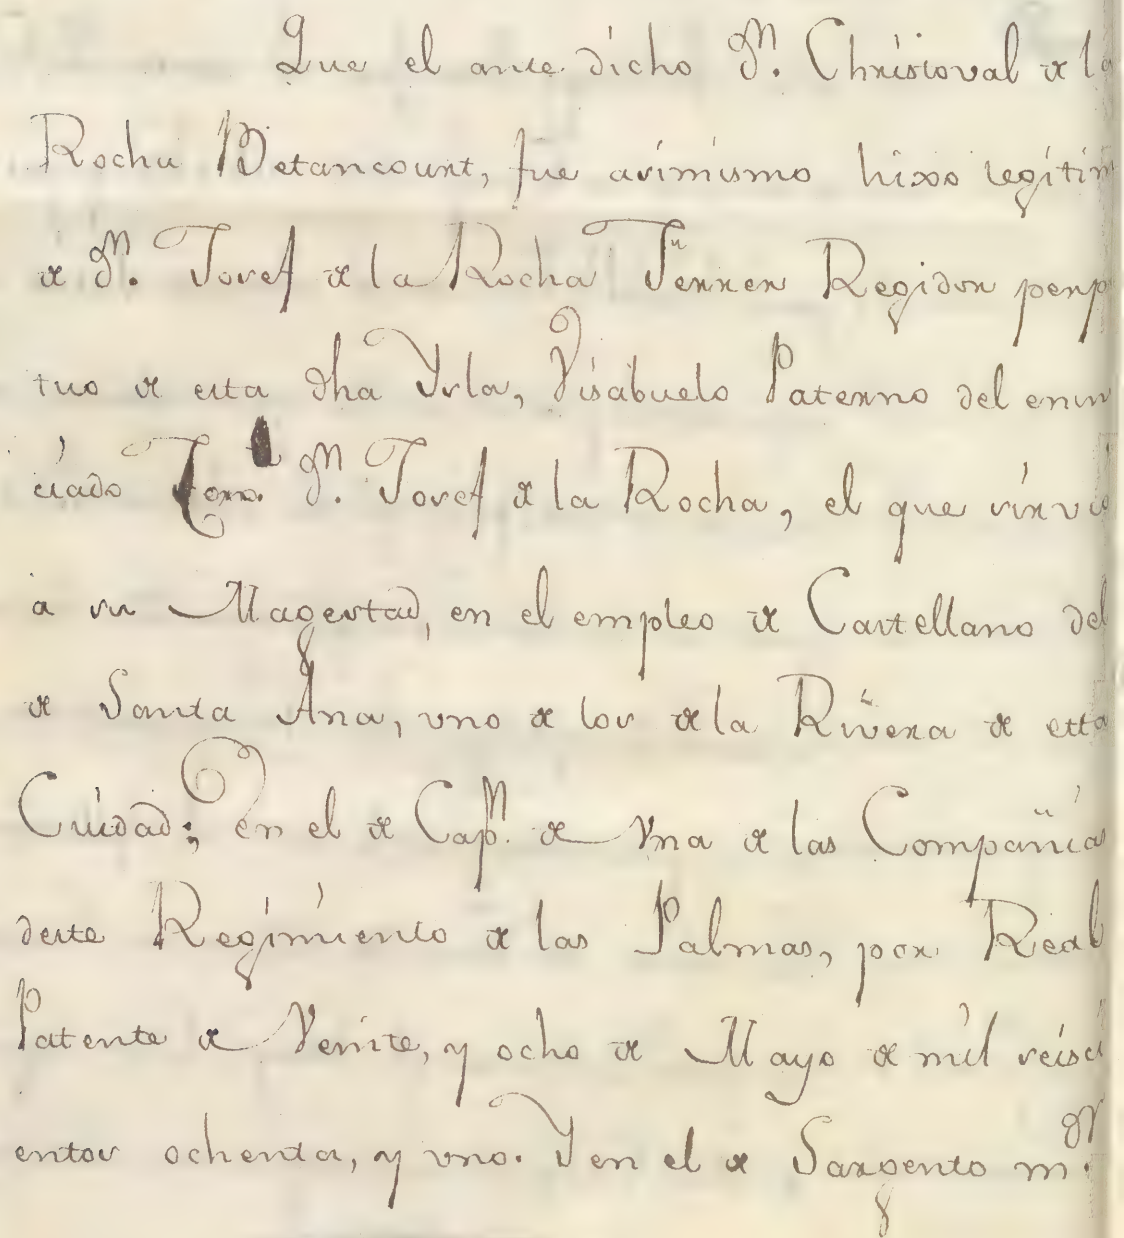 Que el ante dicho Dn. Christoval de la
Rocha Betancourt, fue asimismo hixo legitim
de Dn. Josef de la Rocha Ferrer Regidor perpe
tuo de esta dha Ysla, Visabuelo Paterno del enun
ciado Dn. Josef de la Rocha, el que sirvió
á su Magestad, en el empleo de Castellano del
de Santa Ana, uno de los de la Rivera de esta
Cuidad; en el de Capn. de Una de las Compañias
deste Regimiento de las Palmas, por Real
Patente de Veinte, y ocho de Mayo de mil seisci
entos ochenta, y uno. Y en el de Sargento mor.